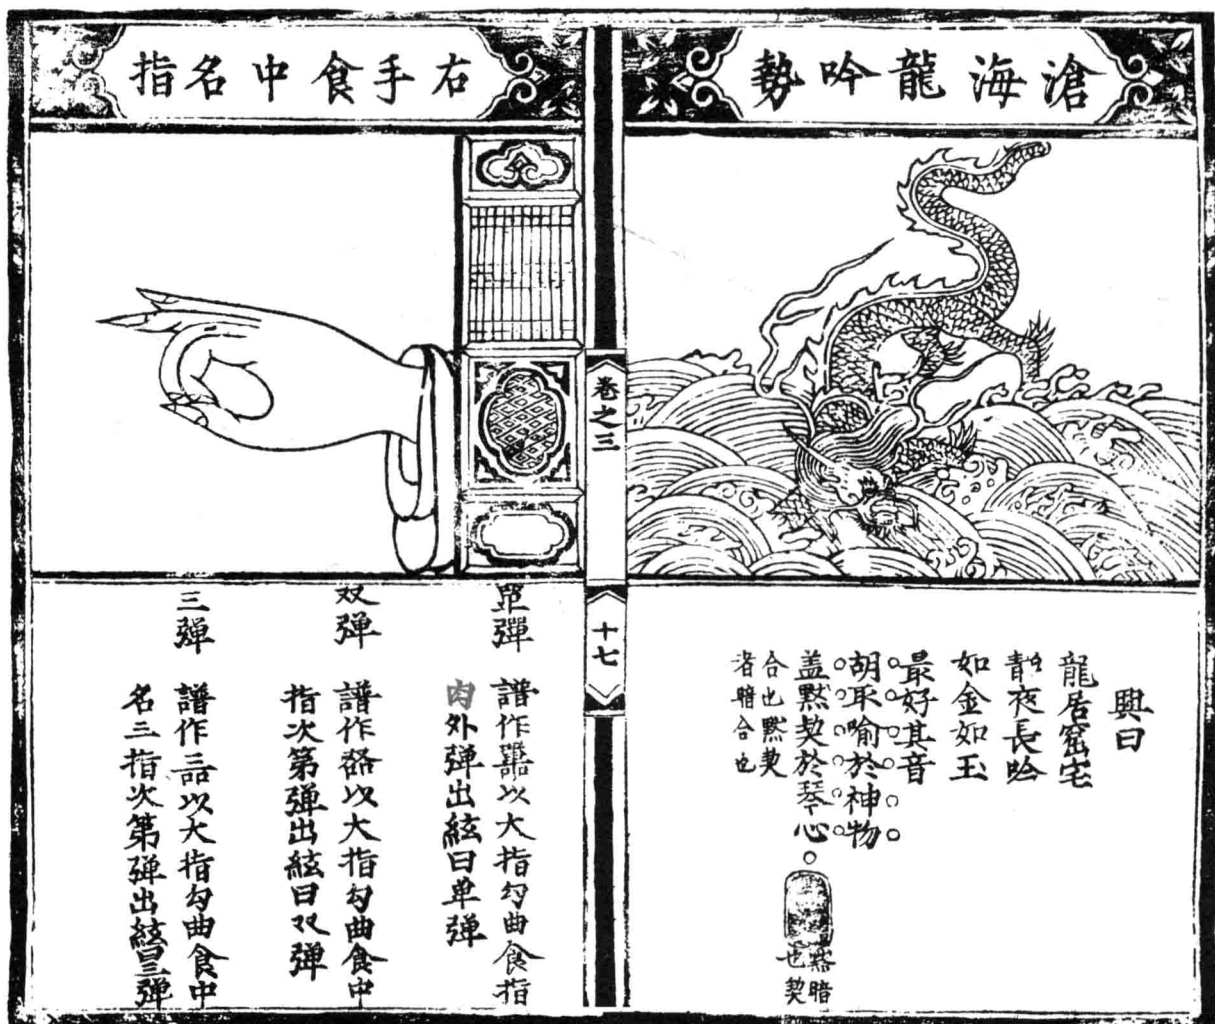 滄海龍吟勢
興曰
龍居窟宅
靜夜長吟
如金如玉
最好其音
胡取喻於神物
盖黙契於琴心
合也黙契
者暗合也
黙暗
也契
卷之三
十七
右手食中名指
單彈
譜作以大指勾曲食指
肉外弹出絃曰单弹
双弹
譜作以大指勾曲食中
指次第弹出絃曰双弹
三弹
譜作以大指勾曲食中
名三指次第弹出絃曰三弹